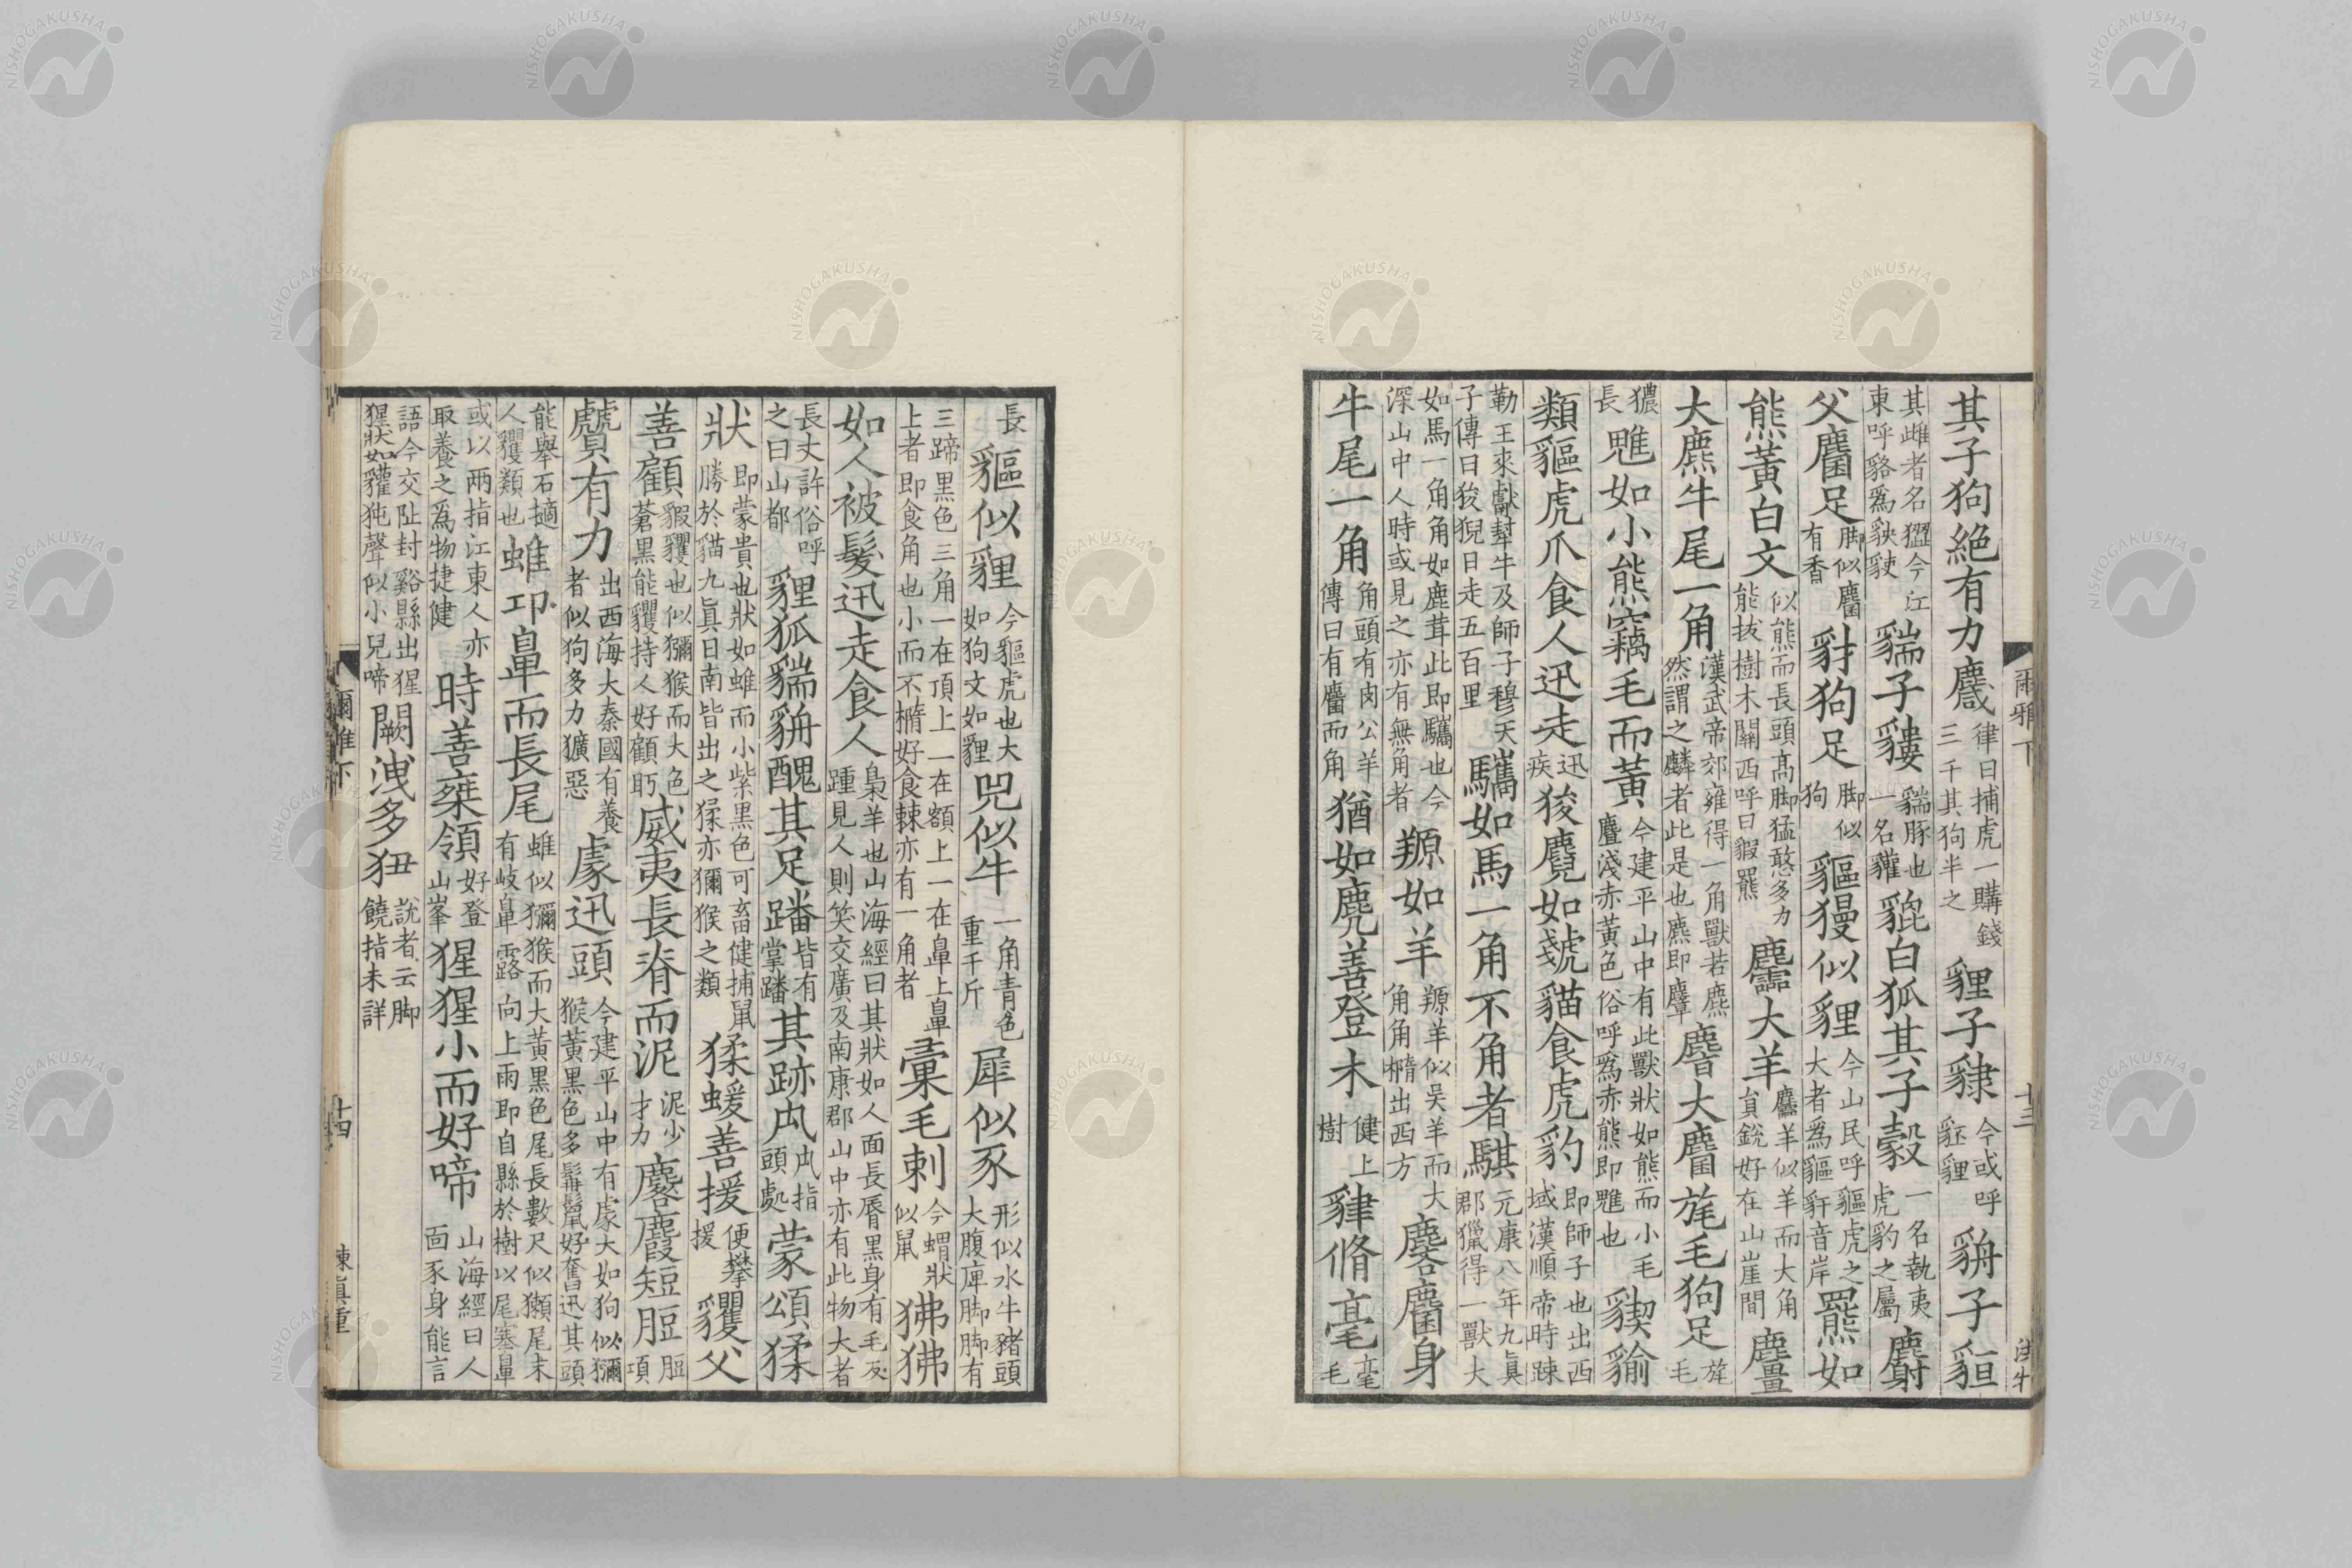 其子狗絶有力麙律曰捕虎一購錢三千其狗半之貍子貄今或呼豾貍貈子貆
其雌者名𤡔今江東呼貉爲𧲱𧳅貒子貗貒豚也一名貛貔白狐其子豰一名執夷虎豹之屬麝
父麕足脚似麕有香豺狗足脚似狗貙獌似貍今山民呼貙虎之大者爲貙豻音岸羆如
熊黃白文似熊而長頭高脚猛憨多力能拔樹木關西呼曰貑羆麢大羊麢羊似羊而大角貟銳好在山崖間麠
大麃牛尾一角漢武帝郊雍得一角獸若麃然謂之麟者此是也麃即麞麔大麕旄毛狗足旄毛
獳長魋如小熊竊毛而黃今建平山中有此獸狀如熊而小毛麆淺赤黃色俗呼爲赤熊即魋也猰貐
類貙虎爪食人迅走迅疾狻麑如虦貓食虎豹即師子也出西域漢順帝時踈
勒王來獻犎牛及師子穆天子傳曰狻猊日走五百里驨如馬一角不角者騏元康八年九眞郡獵得一獸大
如馬一角角如鹿茸此即驨也今深山中人時或見之亦有無角者羱如羊羱羊似吳羊而大角角橢出西方麐麕身
牛尾一角角頭有肉公羊傳曰有麕而角猶如麂善登木健上樹貄脩毫毫毛
爾雅下
十三
長貙似貍今貙虎也大如狗文如貍兕似牛一角青色重千斤犀似豕形似水牛豬頭大腹庳脚脚有
三蹄黑色三角一在頂上一在額上一在鼻上鼻上者即食角也小而不橢好食棘亦有一角者彙毛刺今蝟狀似鼠狒狒
如人被髮迅走食人梟羊也山海經曰其狀如人面長脣黑身有毛反踵見人則笑交廣及南康郡山中亦有此物大者
長丈許俗呼之曰山都貍狐貒貈醜其足蹯皆有掌蹯其跡厹厹指頭處蒙頌猱
狀即蒙貴也狀如蜼而小紫黑色可畜健捕鼠勝於貓九眞日南皆出之猱亦獼猴之類猱蝯善援便攀援貜父
善顧貑貜也似獼猴而大色蒼黑能貜持人好顧盼威夷長脊而泥泥少才力麔麚短脰脰項
贙有力出西海大秦國有養者似狗多力獷惡豦迅頭今建平山中有豦大如狗似獼猴黃黑色多髯鬣好奮迅其頭
能舉石擿人貜類也蜼卬鼻而長尾蜼似獼猴而大黃黑色尾長數尺似獺尾末有岐鼻露向上雨即自縣於樹以尾塞鼻
或以兩指江東人亦取養之爲物捷健時善椉領好登山峯猩猩小而好啼山海經曰人面豕身能言
語今交阯封谿縣出猩猩狀如貛㹠聲似小兒啼闕洩多狃說者云脚饒指未詳
爾雅下
十四
NISHOGAKUSHA